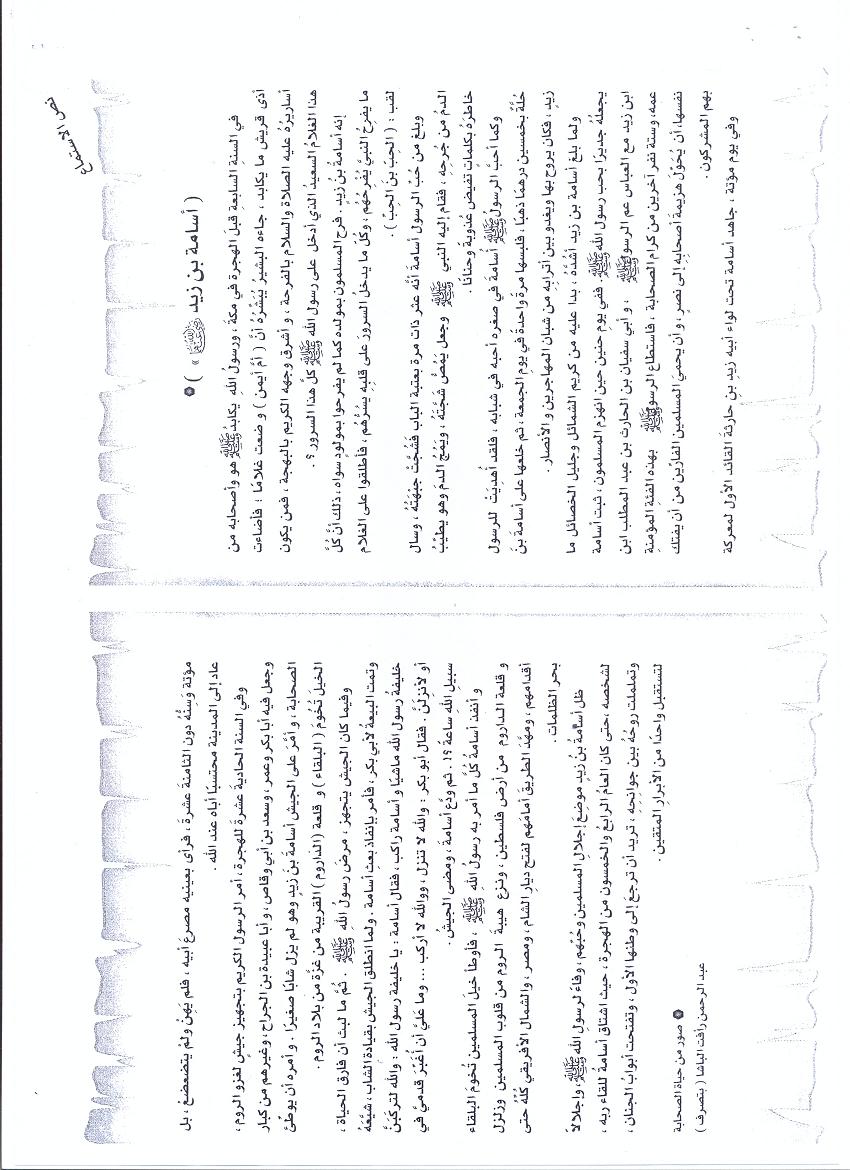 نص الاستماع
( أسامة بن زيد « رضي الله عنه » )
في السنةِ السابعةِ قبلَ الهجرةِ في مكةَ ، ورسولُ اللهِ يكابدُ ﷺ هو وأصحابه من
أذى قريش ما يكابد ، جاءه البشيرُ يُبَشِّرُهُ أنَّ ( أمَّ أيمن ) و ضعت غلامًا ؛ فأضاءت
أساريرُه عليه الصلاة والسلام بالفرحة ، و أشرق وجهه الكريم بالبهجة ، فمن يكون
هذا الغلامُ السعيدُ الذي أدخل على رسول الله ﷺ كلَّ هذا السرور ؟ .
إنه أسامةُ بنُ زيدٍ . فرح المسلمون بمولده كما لم يفرحوا بمولودٍ سواه ، ذلك أنَّ كلَّ
ما يفرحُ النبيَّ يُفرحُهُم ، وكلُّ ما يدخل السرورَ على قلبِهِ يسُرُّهُم ، فأطلقوا على الغلامِ
لقب : ( الحِبّ بن الحِبّ ) .
وبلغ من حُبِّ الرسول أسامةَ أنَّه عشر ذات مرة بعتبة الباب فَشُجَّتْ جبهَتُهُ ، وسال
الدمُ من جُرحِهِ ، فقام إليه النبي ﷺ وجعل يَمُصُّ شَجَّتَهُ ، ويَمُجُّ الدمَ وهو يطيِّبُ
خاطرَهُ بكلماتٍ تفيضُ عذوبةً وحنانًا .
وكما أحبَّ الرسولُ ﷺ أسامةَ في صغرِه أحبه في شبابِه ، فلقد أُهدِيَتْ للرسول
حُلَّةٌ بخمسين درهمًا ذهبًا ، فلبِسها مرةً واحدةً في يوم الجمعة ، ثم خلعها على أسامةَ بنَ
زيدٍ ، فكان يروح بها ويغدو بين أترابِهِ من شبان المهاجرين و الأنصار .
ولما بلغ أسامة بن زيد أَشُدَّهُ ، بدا عليه من كريمِ الشمائل وجليلِ الخصائلِ ما
يجعلُهُ جديرًا بحب رسول الله ﷺ ففي يومِ حنين حين انهزم المسلمون ، ثبت أسامة
ابن زيد مع العباس عم الرسول ﷺ ، و أبي سفيان بن الحارث بن عبد المطلب ابن
عمه ، وستة نفر آخرين من كرام الصحابة ، فاستطاع الرسول ﷺ بهذه الفئة المؤمنة
نفسها، أن يُحَوِّلَ هزيمةَ أصحابِهِ إلى نصرٍ ، و أن يحميَ المسلمين الفارّين من أن يفتك
بهم المشركون .
وفي يوم مؤتة ، جاهد أسامة تحت لواء أبيه زيدِ بنِ حارثةَ القائد الأول لمعركة
مؤتة وَسِنُّه دون الثامنة عشرة ، فرأى بعينيه مصرعَ أبيه ، فلم يَهِنْ ولم يتضعضعْ ، بل
عاد إلى المدينة محتسبًا أباه عند الله .
وفي السنة الحادية عشرةَ للهجرة ، أمر الرسول الكريم بتجهيز جيشٍ لغزو الروم ،
وجعل فيه أبا بكر وعمر ، وسعد بن أبي وقاص ، و أبا عبيدة بن الجراح ، وغيرهم من كبار
الصحابة ، و أمَّرَ على الجيشِ أسامةَ بنَ زيدٍ وهو لم يزل شابًا صغيرًا . و أمره أن يوطئَ
الخيلَ تُخُومَ ( البلقاء ) و قلعة (الداروم ) القريبة من غزَّة من بلاد الروم.
وفيما كان الجيش يتجهز ، مرِضَ رسولُ اللهِ ﷺ . ثُمَّ ما لبث أن فارق الحياة ،
وتمت البيعةُ لأبي بكر ، فأمر بإنفاذ بعثِ أسامة . ولما انطلق الجيش بقيادة الشاب ، شيَّعَهُ
خليفةُ رسول الله ماشيًا و أسامة راكب ، فقال أسامة : يا خليفة رسول الله : والله لتركبَنَّ
أو لأنزِلَنَّ . فقال أبو بكر : والله لا تنزل ، ووالله لا أركب ... وما عليَّ أن أُغَبِّرَ قدمي في
سبيلِ الله ساعة ؟! . ثم ودَّع أسامةَ ، ومضى الجيشُ .
و أنفذ أسامةُ كُلَّ ما أمر به رسولُ اللهِ ﷺ ، فأوطأ خيلَ المسلمين تُخُومَ البلقاء
و قلعة الداروم من أرض فلسطين ، ونزع هيبةَ الروم من قلوب المسلمين وزلزل
أقدامهم ، ومهَّد الطريقَ أمامَهم لفتح ديارِ الشام ، ومصر ، والشمال الأفريقي كُلِّهِ حتى
بحر الظلمات.
ظل أسامةُ بنُ زيدٍ موضعَ إجلال المسلمين وحُبِّهم ، وفاءً لرسول الله ﷺ ، وإجلالًا
لشخصه ،حتى كان العامُ الرابعُ والخمسون من الهجرة ، حيث اشتاق أسامةُ للقاء ربه ،
وتململت روحُهُ بين جوانِحِهِ ، تريد أن ترجعَ إلى وطنها الأول ، وتفتحت أبوابُ الجنان ،
لتستقبل واحدًا من الأبرار المتقين .
صور من حياة الصحابة
عبد الرحمن رأفت الباشا ( بتصرف )